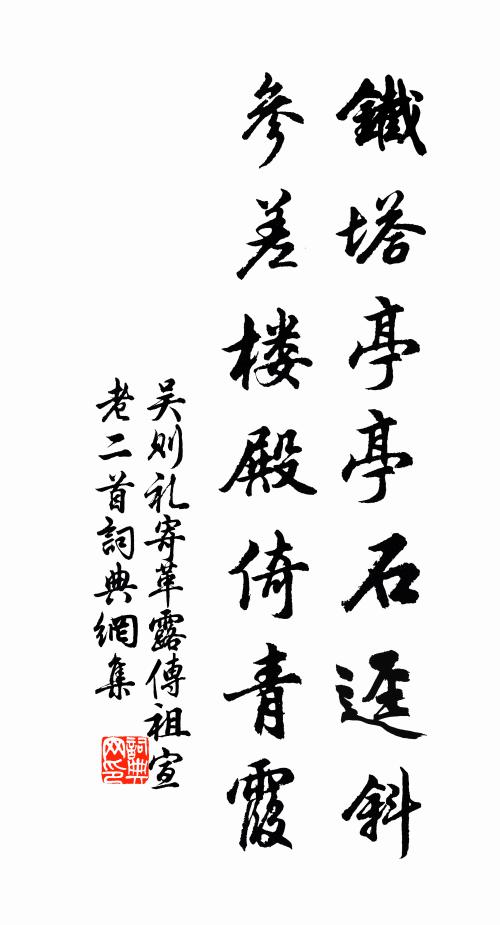 鐵塔亭亭石逕斜
參差楼殿倚青霞
吴则礼寄華露傳祖宣
老二首詞典網集
詞典網印